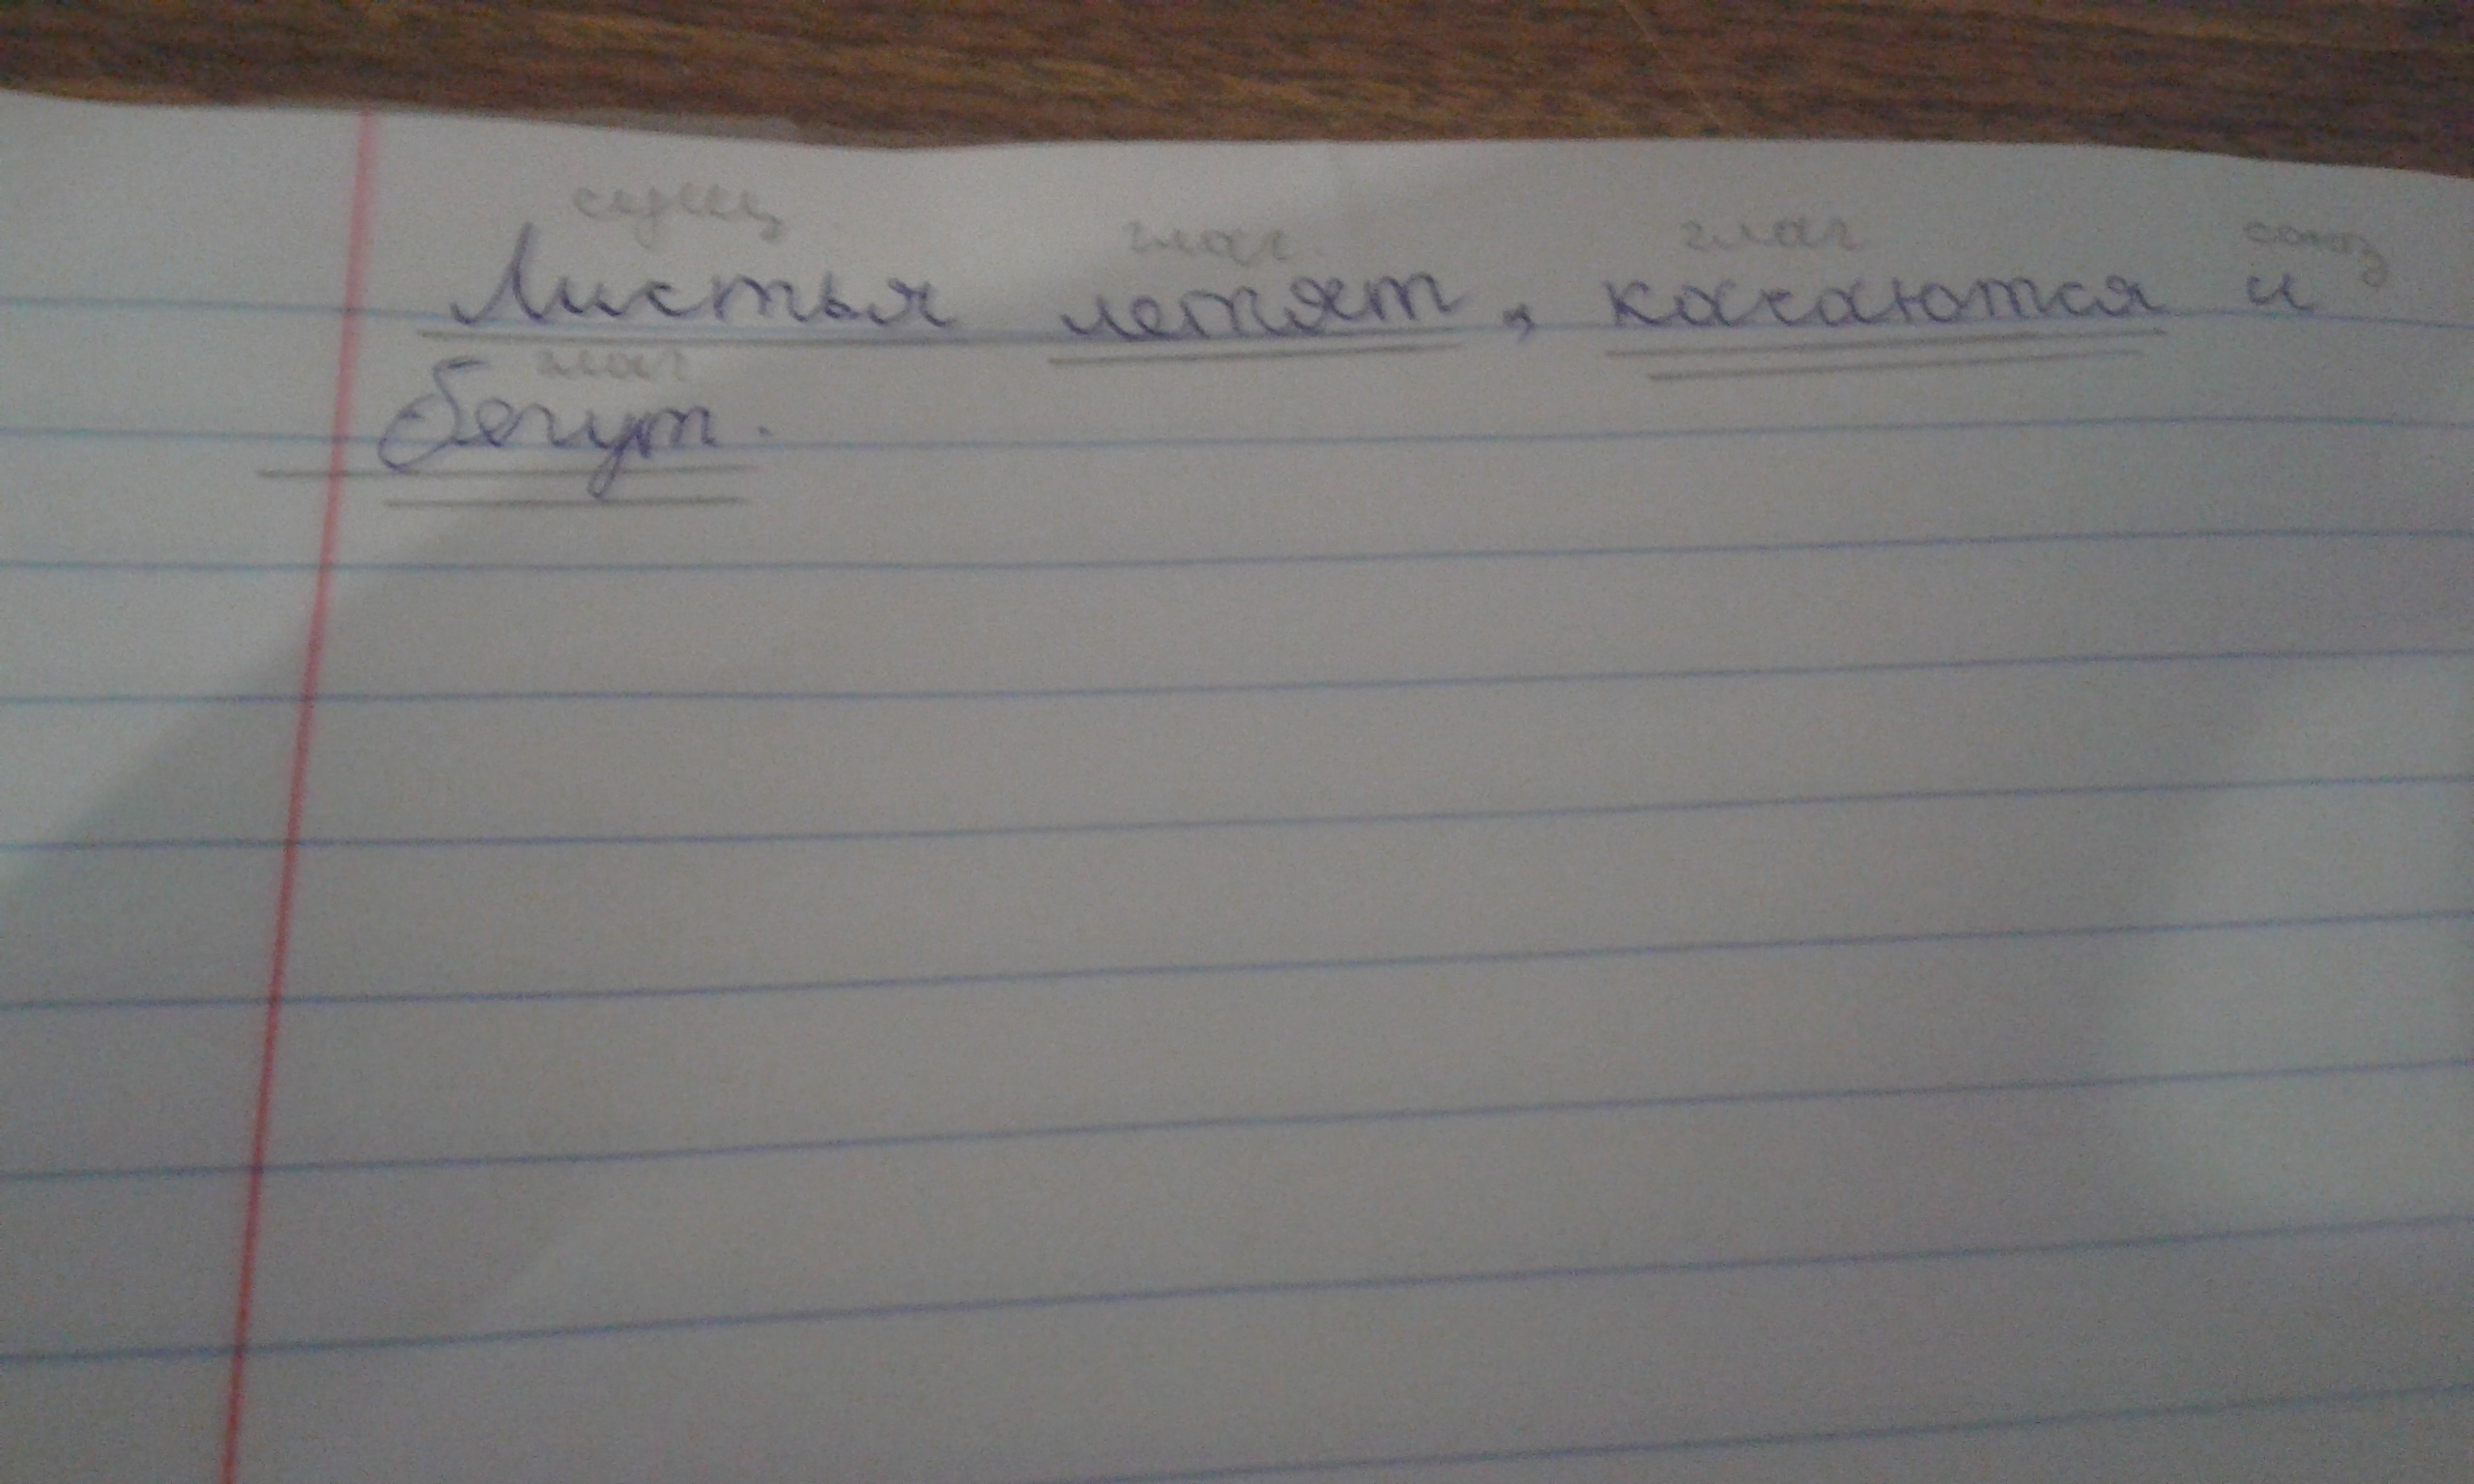 сущ глаг. глаг союз
Листья летят, касаются и
глаг
бегут.